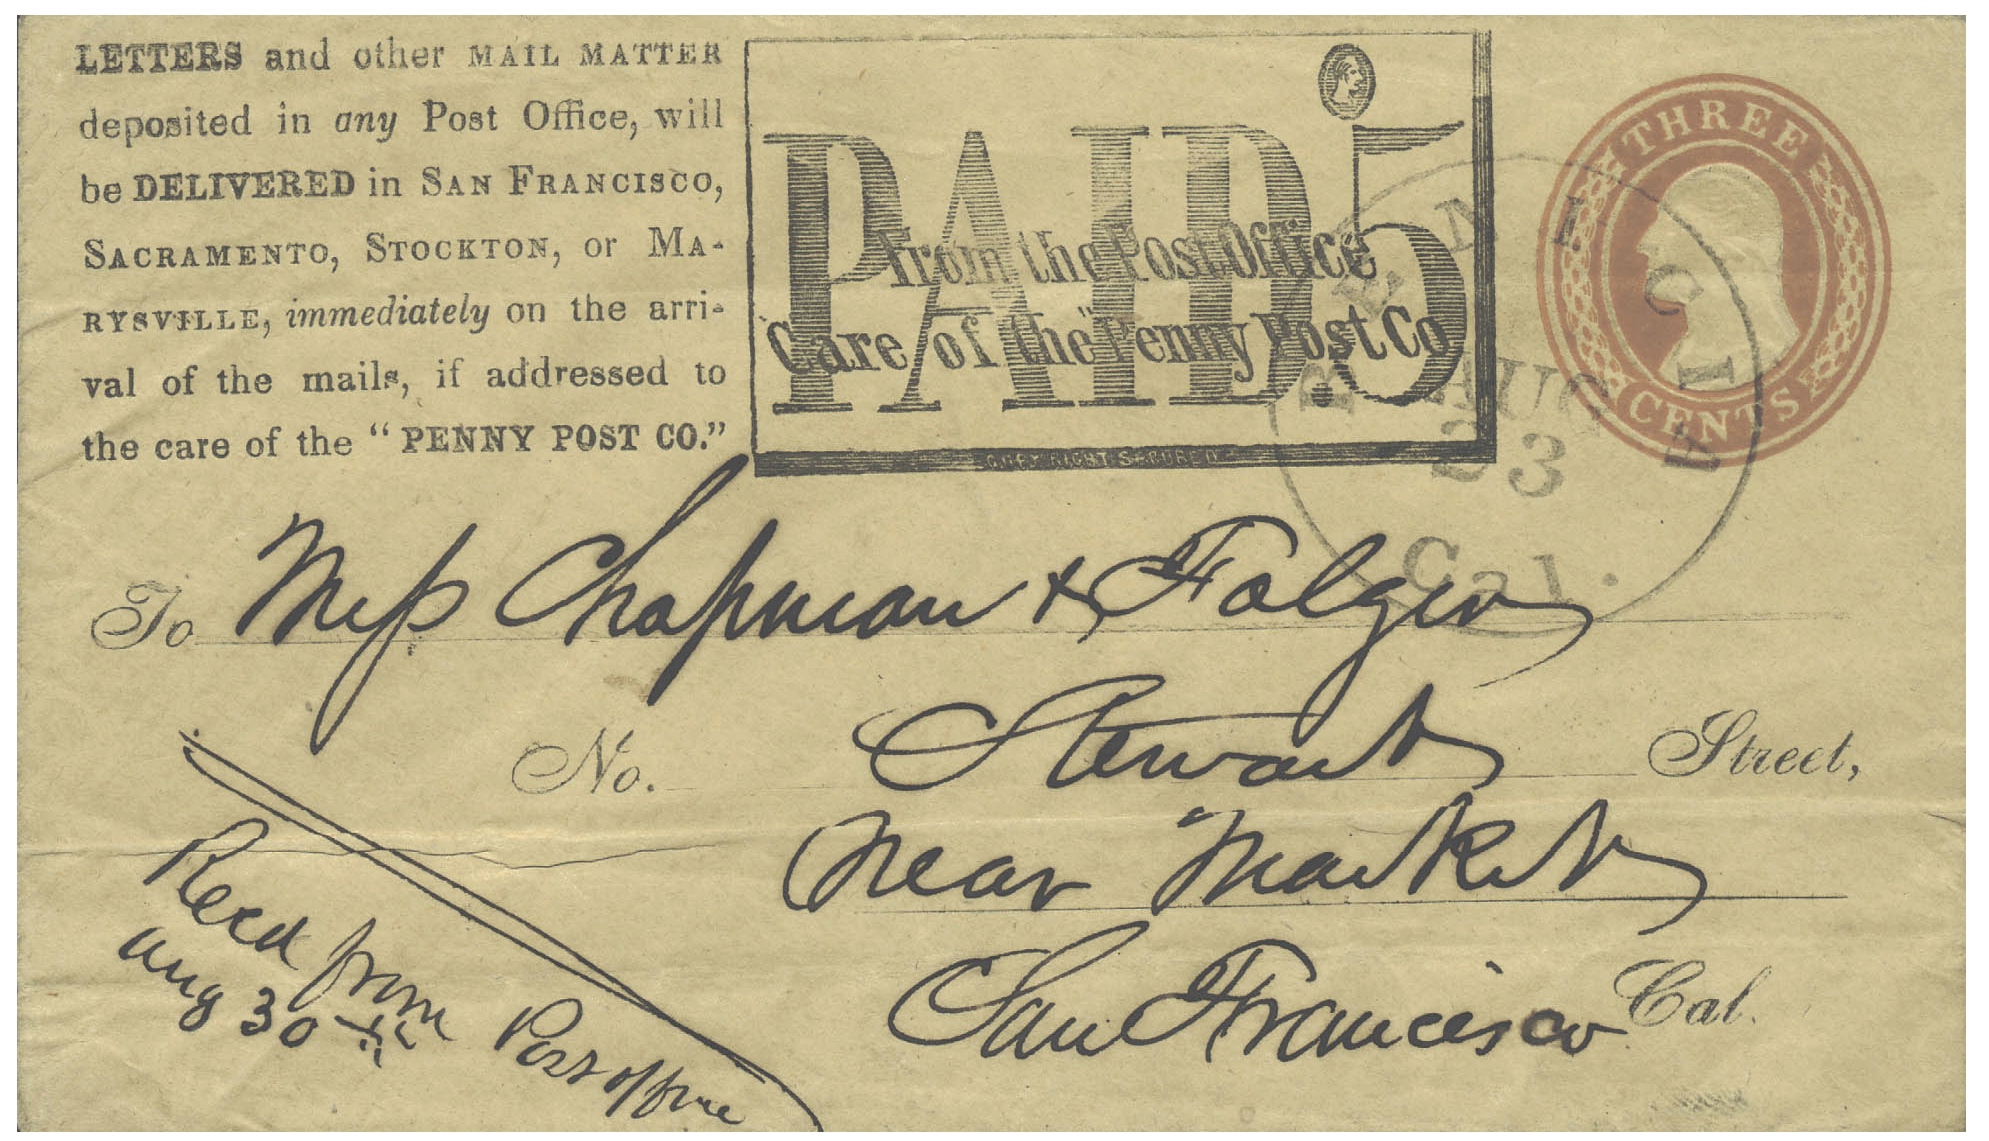 LETTERS and other MAIL MATTER
deposited in any Post Office, will
be DELIVERED in SAN FRANCISCO,
SACRAMENTO, STOCKTON, or MA-
RYSVILLE, immediately on the arri-
val of the mails, if addressed to
the care of the "PENNY POST CO."
PAID 5
From the Post Office
Care of the "Penny Post Co.
COPY RIGHT SECURED
THREE
CENTS
BENICIA
AUG
23
Cal.
To Mess Chapman & Folger
No. Stewart Street,
near Market
San Francisco Cal.
Recd from Post office
Aug 30